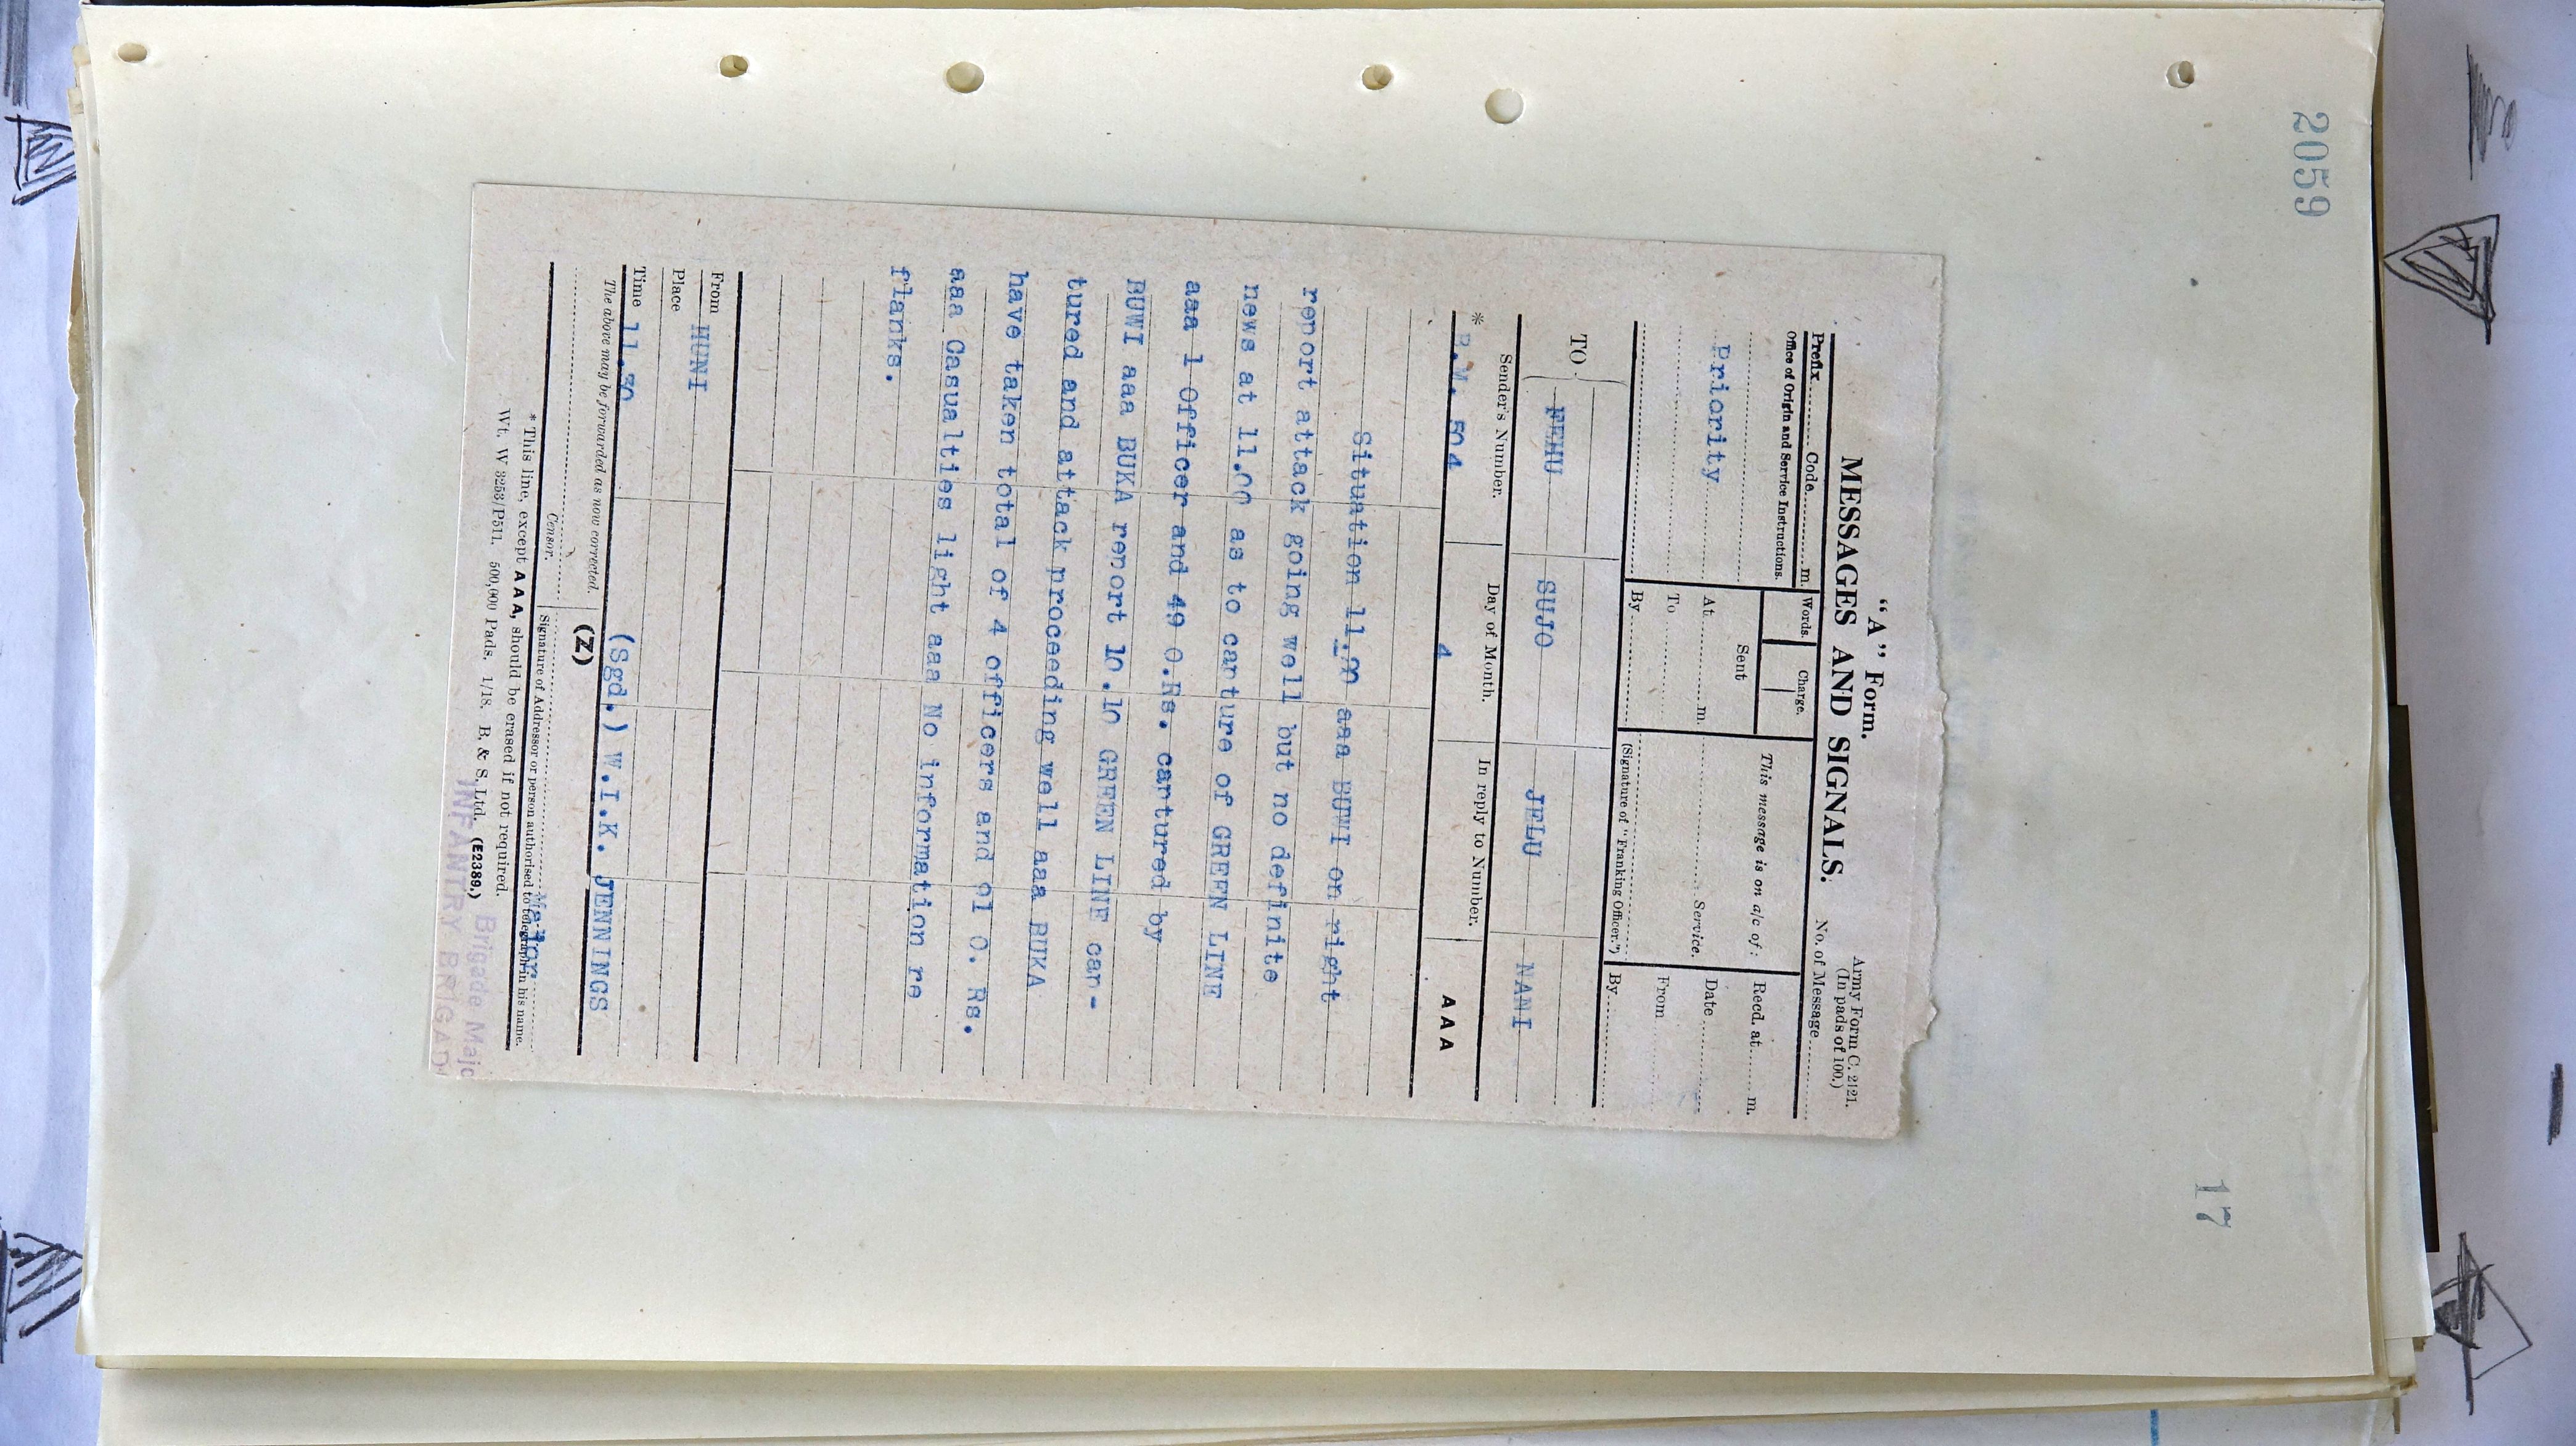 2059
17
"A" Form.
Army Form C. 2121.
(In pads of 100.)
MESSAGES AND SIGNALS.
No. of Message
Prefix Code m.
Words.
Charge.
This message is on a/c of:
Recd. at m.
Office of Origin and Service Instructions.
Sent
Date
Priority
At m.
Service.
From
To
By
(Signature of "Franking Officer.")
By
TO
FEHU
SUJO
JELU
NANI
Sender's Number.
Day of Month.
In reply to Number.
AAA
* B.M. 504
4
Situation 11.00 aaa BUWI on right
report attack going well but no definite
news at 11.00 as to capture of GREEN LINE
aaa 1 Officer and 49 O.Rs. captured by
BUWI aaa BUKA report 10.10 GREEN LINE cap-
tured and attack proceeding well aaa BUKA
have taken total of 4 officers and 91 O. Rs.
aaa Casualties light aaa No information re
flanks.
From HUNI
Place
Time 11.30
(Sgd.) W.I.K. JENNINGS
The above may be forwarded as now corrected.
(Z)
Censor.
Signature of Addressor or person authorised to telegraph in his name.
Major
* This line, except AAA, should be erased if not required.
Wt. W 3253/P511. 500,000 Pads. 1/18. B. & S. Ltd. (E2389.)
Brigade Majo
INFANTRY BRIGAD